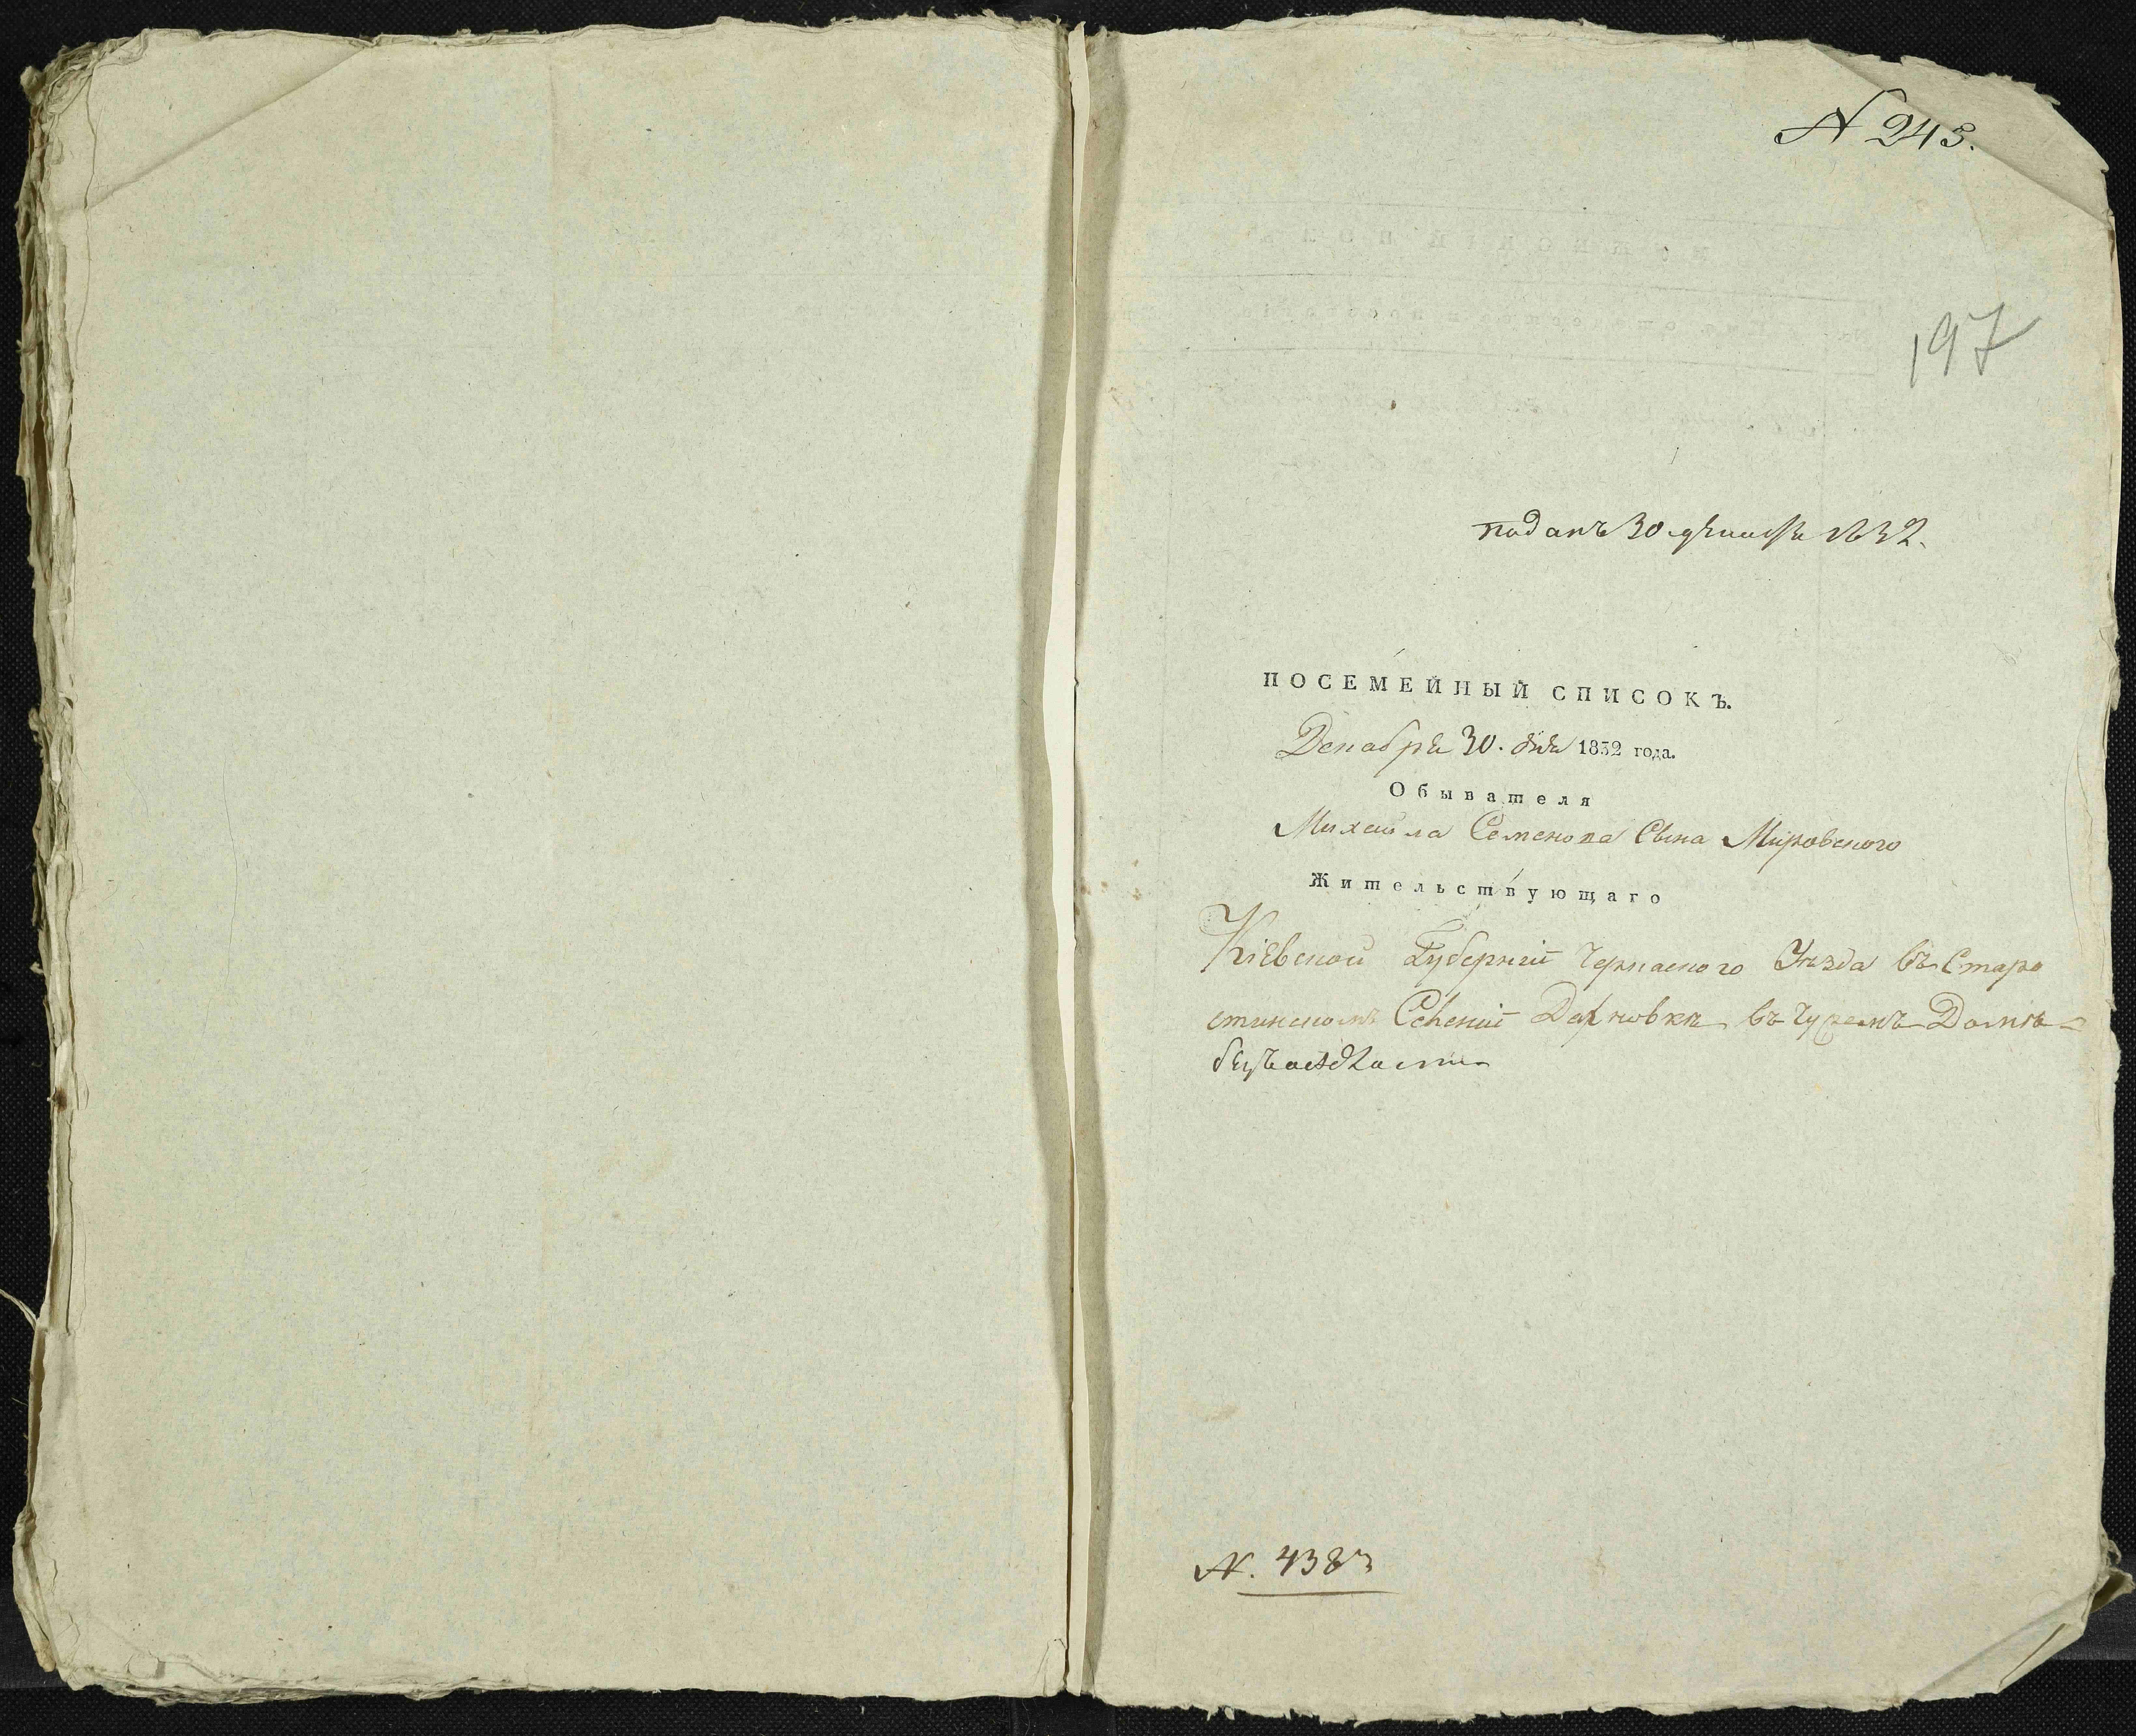 N 243.
197
поданъ 30 декабря 1832.
ПОСЕМЕЙНЫЙ СПИСОКЪ.
Декабря 30. дня 1832 года.
Обывателя
Михайла Семенова Сына Мировского
Жительствующаго
Кіевской Губерніи Черкаского Уезда въ Старо
стинскомъ Селеніи въ Чужемъ Доме
N. 438